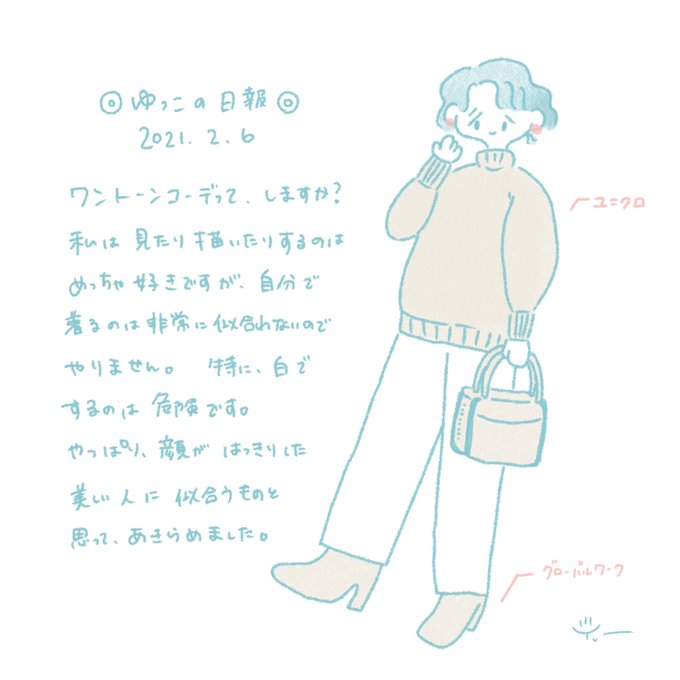 ◎ ゆっこの日報 ◎
2021. 2. 6
ワントーンコーデって、しますか?
私は 見たり描いたりするのは
めっちゃ好きですが、自分で
着るのは非常に似合わないので
やりません。 特に、白で
するのは危険です。
やっぱり、顔が はっきりした
美しい人に 似合うものと
思って、あきらめました。
ユニクロ
グローバルワーク